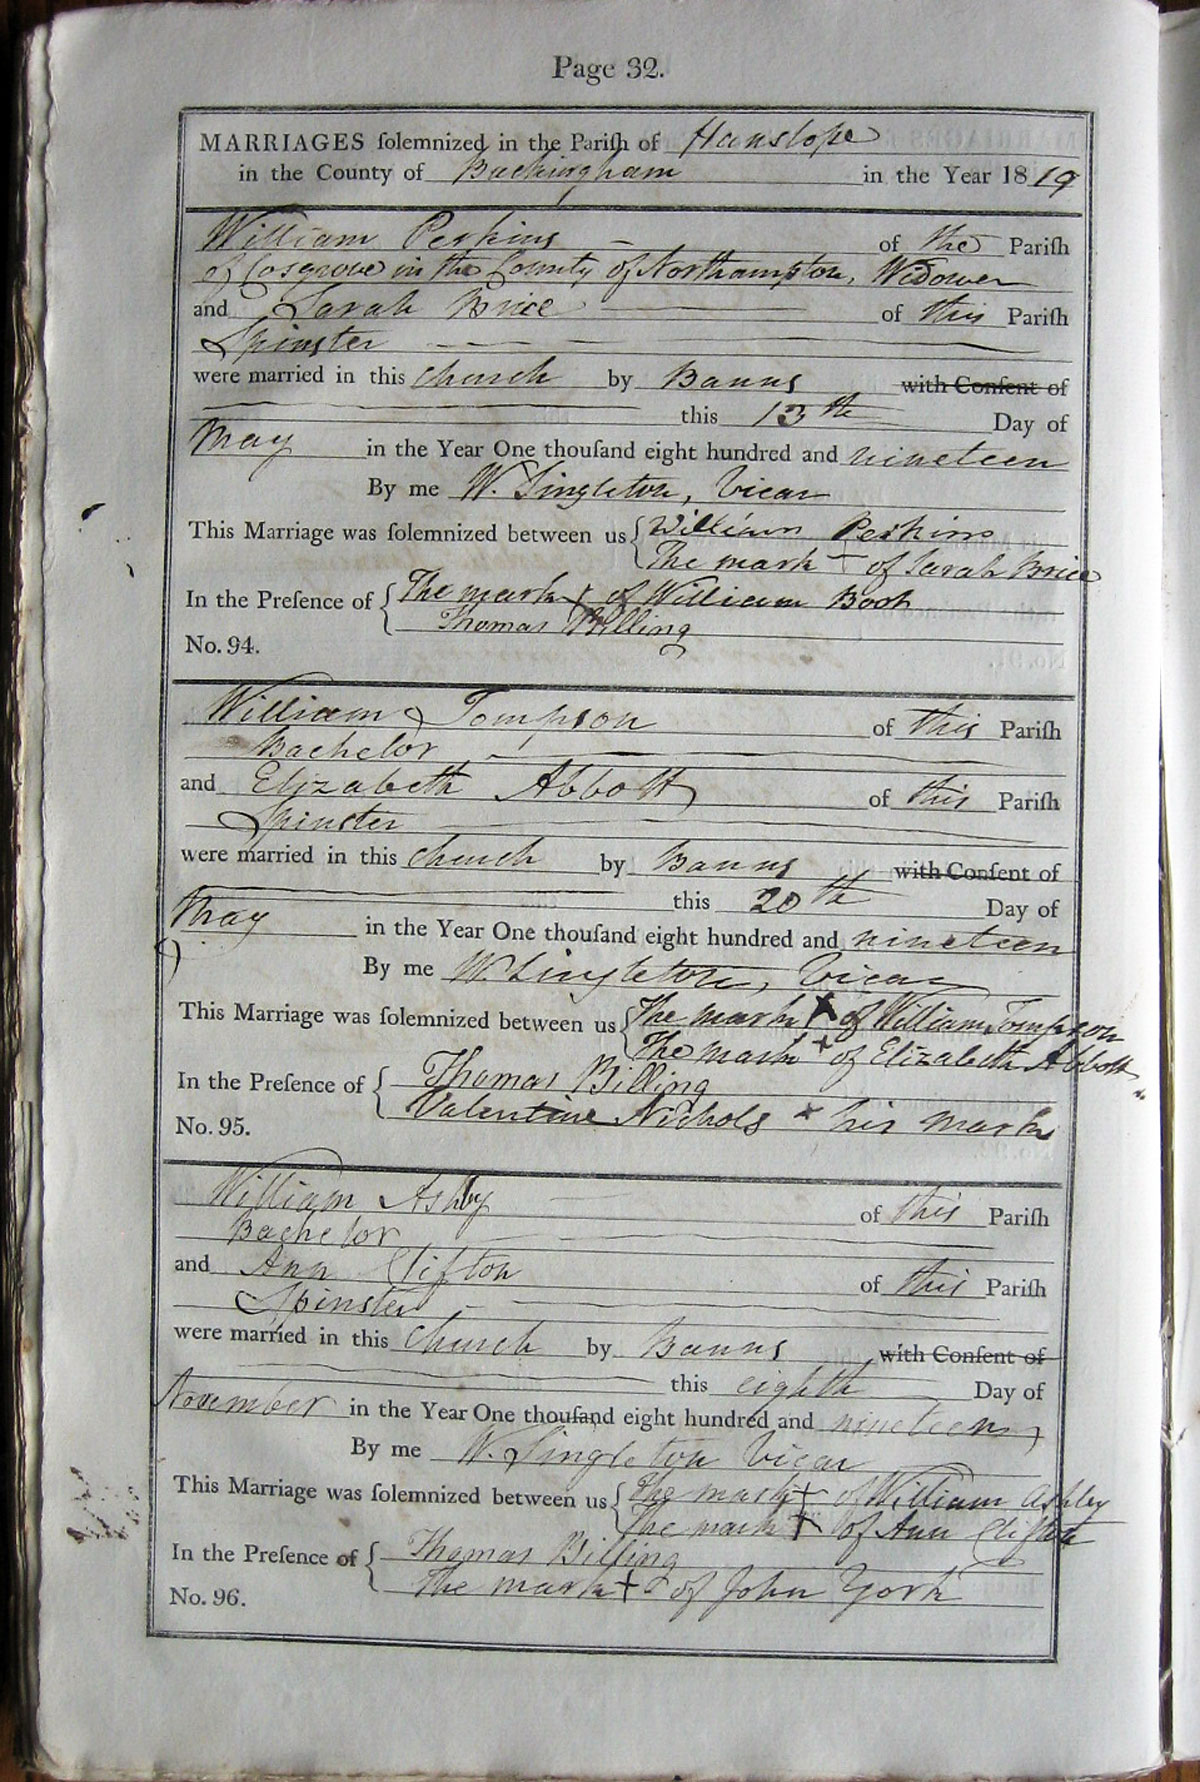 Page 32.
MARRIAGES ſolemnized in the Pariſh of Hanslope
in the County of Buckingham in the Year 1819
William Perkins of the Pariſh
of Cosgrove in the County of Northampton, Widower
and Sarah Brice of this Pariſh
Spinster
were married in this Church by Banns with Conſent of
this 13th Day of
May in the Year One thouſand eight hundred and nineteen
By me W. Singleton, Vicar
This Marriage was ſolemnized between us { William Perkins
The mark + of Sarah Brice
In the Preſence of { The mark + of William Bosh
Thomas Billing
No. 94.
William Tompson of this Pariſh
Bachelor
and Elizabeth Abbott of this Pariſh
Spinster
were married in this Church by Banns with Conſent of
this 20th Day of
May in the Year One thouſand eight hundred and nineteen
By me W. Singleton, Vicar
This Marriage was ſolemnized between us { The mark X of William Tompson
The mark + of Elizabeth Abbott
In the Preſence of { Thomas Billing
Valentine Nichols x his mark
No. 95.
William Ashby of this Pariſh
Bachelor
and Ann Clifton of this Pariſh
Spinster
were married in this Church by Banns with Conſent of
this eighth Day of
November in the Year One thouſand eight hundred and nineteen
By me W. Singleton Vicar
This Marriage was ſolemnized between us { The mark + of William Ashby
The mark + of Ann Clifton
In the Preſence of { Thomas Billing
The mark + of John York
No. 96.